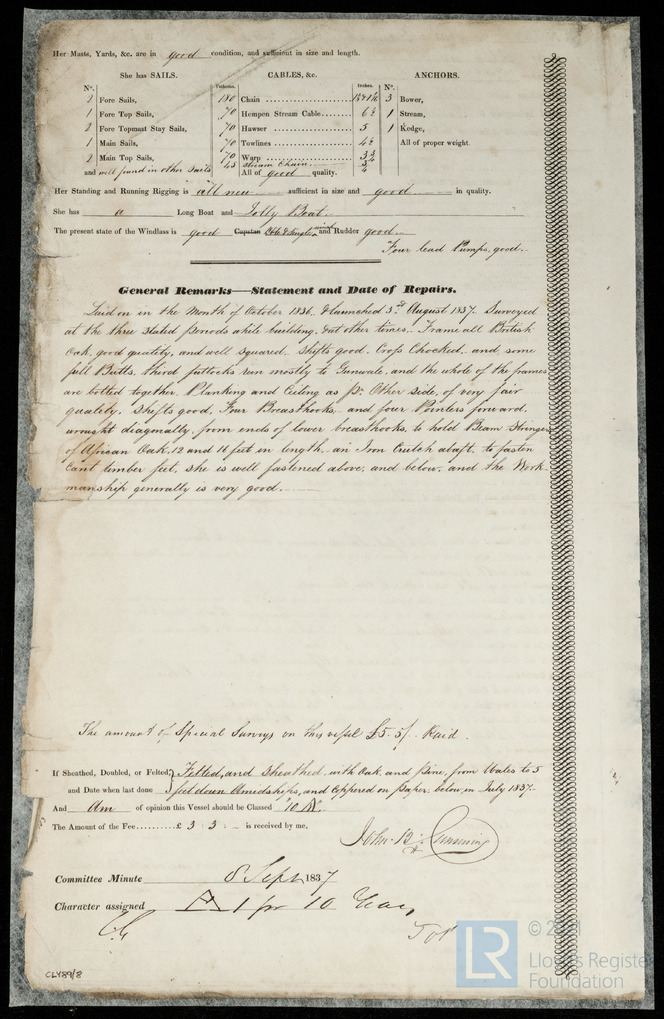 Her Masts, Yards, &c. are in good condition, and sufficient in size and length.
She has SAILS. CABLES, &c. ANCHORS.
Nº. Fathoms. Inches. Nº.
2 Fore Sails, 180 Chain 3 Bower,
1 Fore Top Sails, 70 Hempen Stream Cable 6½ 1 Stream,
2 Fore Topmast Stay Sails, 70 Hawser 5 1 Kedge,
1 Main Sails, 70 Towlines 4½ All of proper weight.
2 Main Top Sails, 70 Warp
and well found in other Sails 45 Stream Chain
All of good quality.
Her Standing and Running Rigging is all new sufficient in size and good in quality.
She has a Long Boat and Jolly Boat.
The present state of the Windlass is good Capstan and Rudder good
Four lead Pumps, good.
General Remarks—Statement and Date of Repairs.
Laid on in the Month of October 1836. & launched 3rd August 1837. Surveyed
at the three stated periods while building, & at other times. Frame all British
Oak, good quality, and well squared. Shifts good. Cross Chocked, and some
full Butts. third futtocks run mostly to Gunwale, and the whole of the frames
are bolted together. Planking and Ceiling as pr. Other side, of very fair
quality, Shifts good, Four Breasthooks, and four Pointers forward,
wrought diagonally, from ends of lower breasthooks, to hold Beam Stringer
of African Oak, 12 and 16 feet in length. an Iron Crutch abaft, to fasten
Cant timber feet, she is well fastened above, and below, and the Work-
manship generally is very good.
The amount of Special Surveys on this vessel £5.5/. Paid.
If Sheathed, Doubled, or Felted, Felted, and Sheathed, with Oak, and pine, from Wales to 5
and Date when last done feet down Amidships, and Coppered on paper below in July 1837.
And Am of opinion this Vessel should be Classed "10 A".
The Amount of the Fee £ 3 3 - is received by me,
John B. Cumming
Committee Minute 8 Sept 1837
Character assigned A 1 for 10 Years
CLY89/8
LR
Lloyd's Register
Foundation